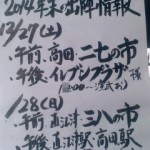 2014年末の出陣情報
12/27(土)
・午前、高田:二七の市
・午後、イレブンプラザ様
1/28(日)
・午前 直江津:三八の市
・午後 直江津駅、高田駅